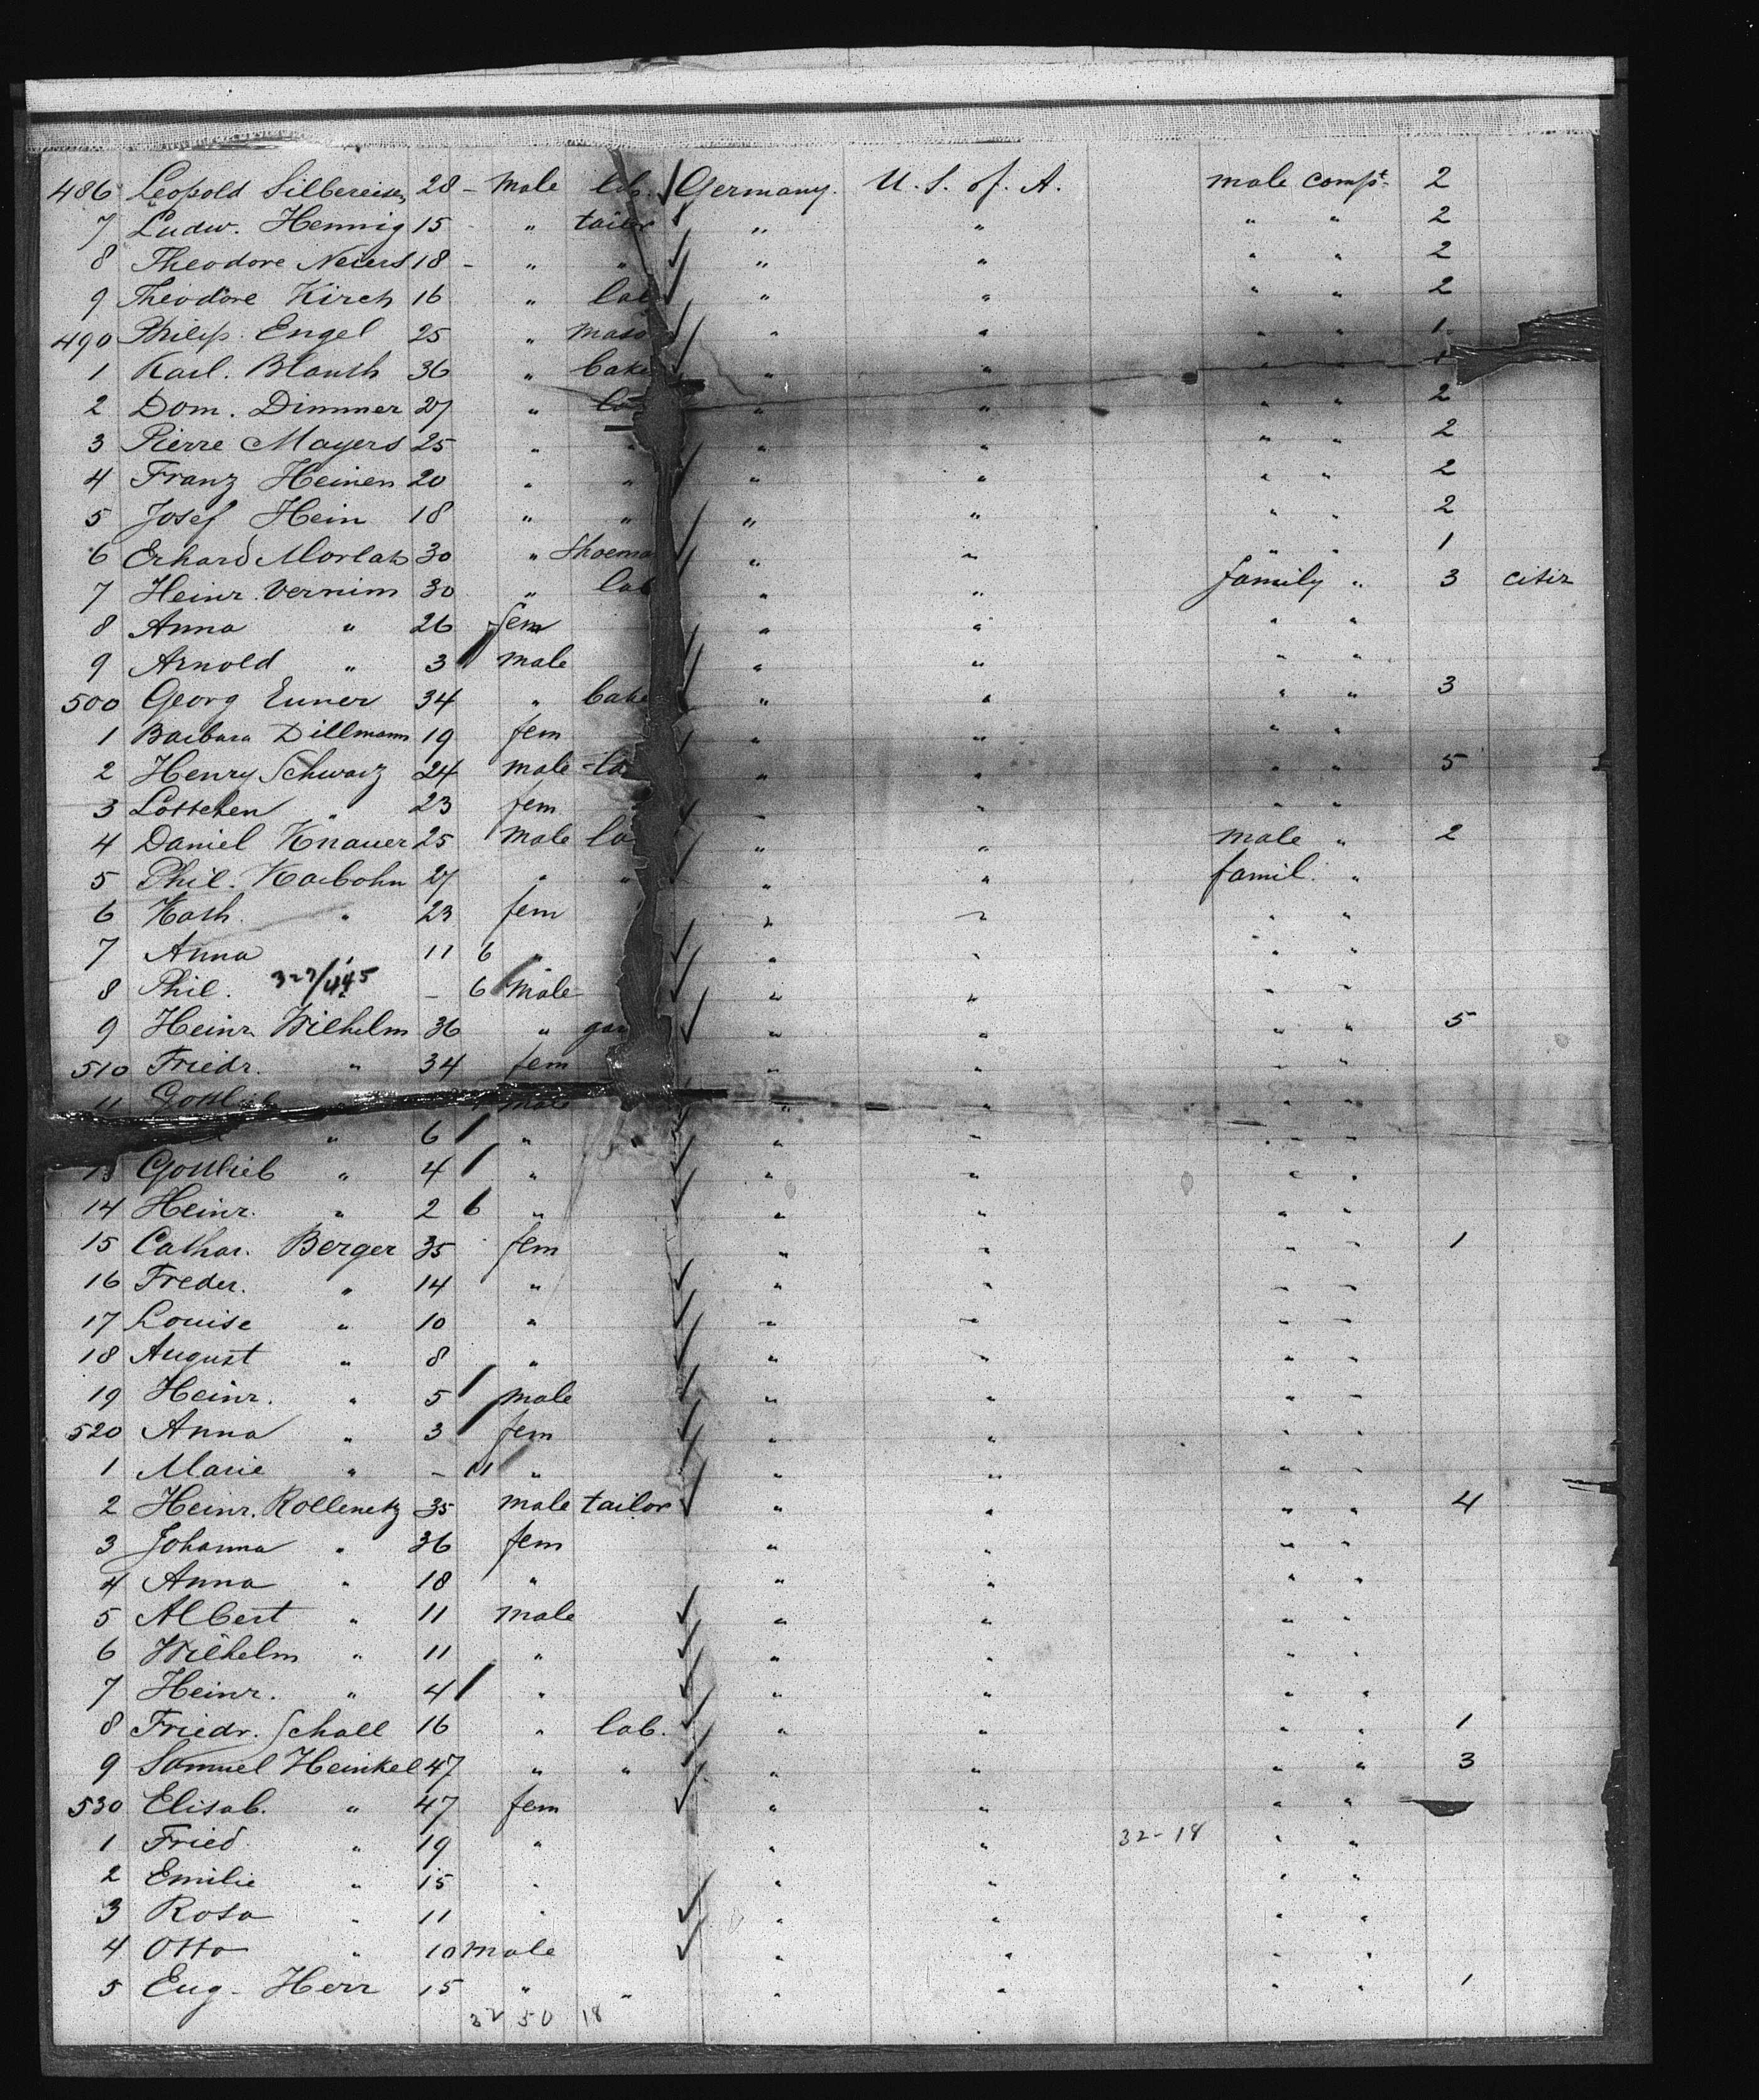 486 Leopold Silbereisen 28 - male lab. Germany. U. S. of. A. male compt. 2
7 Ludw. Hennig 15 - " tailor " " " " 2
8 Theodore Neiers 18 - " " " " " " 2
9 Theodore Kirch 16 " lab " " " " 2
490 Philip. Engel 25 " maso " " " " 1
1 Karl. Blauth 36 " bake " " " " 1
2 Dom. Dimmer 27 " la " " " " 2
3 Pierre Mayers 25 " " " " " " 2
4 Franz Heinen 20 " " " " " " 2
5 Josef Hein 18 " " " " " " 2
6 Erhard Morlats 30 " Shoema " " " " 1
7 Heinr. Vernim 30 " lab " " family " 3 citiz
8 Anna " 26 fem " " " "
9 Arnold " 3 male " " " "
500 Georg Euner 34 " bake " " " " 3
1 Barbara Dillmann 19 fem " " " "
2 Henry Schwarz 24 male la " " " " 5
3 Lottchen " 23 fem " " " "
4 Daniel Knauer 25 male la " " male " 2
5 Phil. Karbohn 27 " " " " famil. "
6 Kath. " 23 fem " " " "
7 Anna " 11 6 " " " " "
8 Phil. 327/445 " - 6 male " " " "
9 Heinr. Wilhelm 36 " gar " " " " 5
510 Friedr. " 34 fem " " " "
11 Gottlieb male " " " "
" 6 " " " " "
13 Gottlieb " 4 " " " " "
14 Heinr. " 2 6 " " " " "
15 Cathar. Berger 35 fem " " " " 1
16 Freder. " 14 " " " " "
17 Louise " 10 " " " " "
18 August " 8 " " " " "
19 Heinr. " 5 male " " " "
520 Anna " 3 fem " " " "
1 Marie " - 11 " " " " "
2 Heinr. Rollenetz 35 male tailor " " " " 4
3 Johanna " 36 fem " " " "
4 Anna " 18 " " " " "
5 Albert " 11 male " " " "
6 Wilhelm " 11 " " " " "
7 Heinr. " 4 " " " " "
8 Friedr. Schall 16 " lab. " " " " 1
9 Samuel Heinkel 47 " " " " " " 3
530 Elisab. " 47 fem " " " "
1 Fried. " 19 " " " 32-18 " "
2 Emilie " 15 " " " " "
3 Rosa " 11 " " " " "
4 Otto " 10 male " " " "
5 Eug. Herr 15 " " " " " " 1
32 50 18